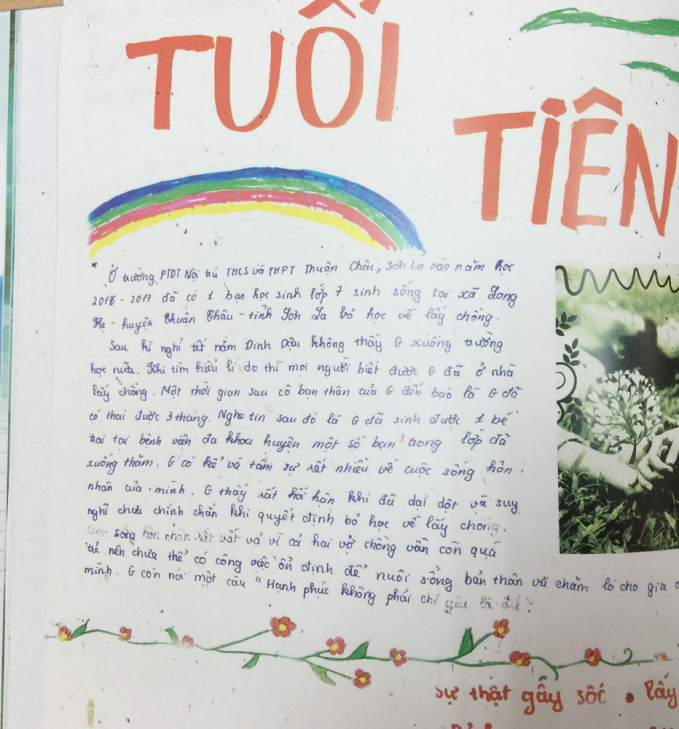 TUỔI
TIÊN
" Ở trường PTDT Nội trú THCS và THPT Thuận Châu, Sơn La vào năm học
2016 - 2017 đã có 1 bạn học sinh lớp 7 sinh sống tại xã Long
Hẹ - huyện Thuận Châu - tỉnh Sơn La bỏ học về lấy chồng.
Sau kì nghỉ tết năm Đinh Dậu không thấy G xuống trường
học nữa. Khi tìm hiểu lí do thì mọi người biết được G đã ở nhà
lấy chồng. Một thời gian sau cô bạn thân của G đến báo là G đã
có thai được 3 tháng. Nghe tin sau đó là G đã sinh được 1 bé
trai tại bệnh viện đa khoa huyện một số bạn trong lớp đã
xuống thăm. G có kể và tâm sự rất nhiều về cuộc sống hôn
nhân của mình. G thấy rất hối hận khi đã dại dột và suy
nghĩ chưa chính chắn khi quyết định bỏ học về lấy chồng.
Cuộc sống hôn nhân rất vất vả vì cả hai vợ chồng vẫn còn quá
trẻ nên chưa thể có công việc ổn định để nuôi sống bản thân và chăm lo cho gia
mình. G còn nói một câu "Hạnh phúc không phải chỉ yêu là đủ".
sự thật gây sốc • lấy